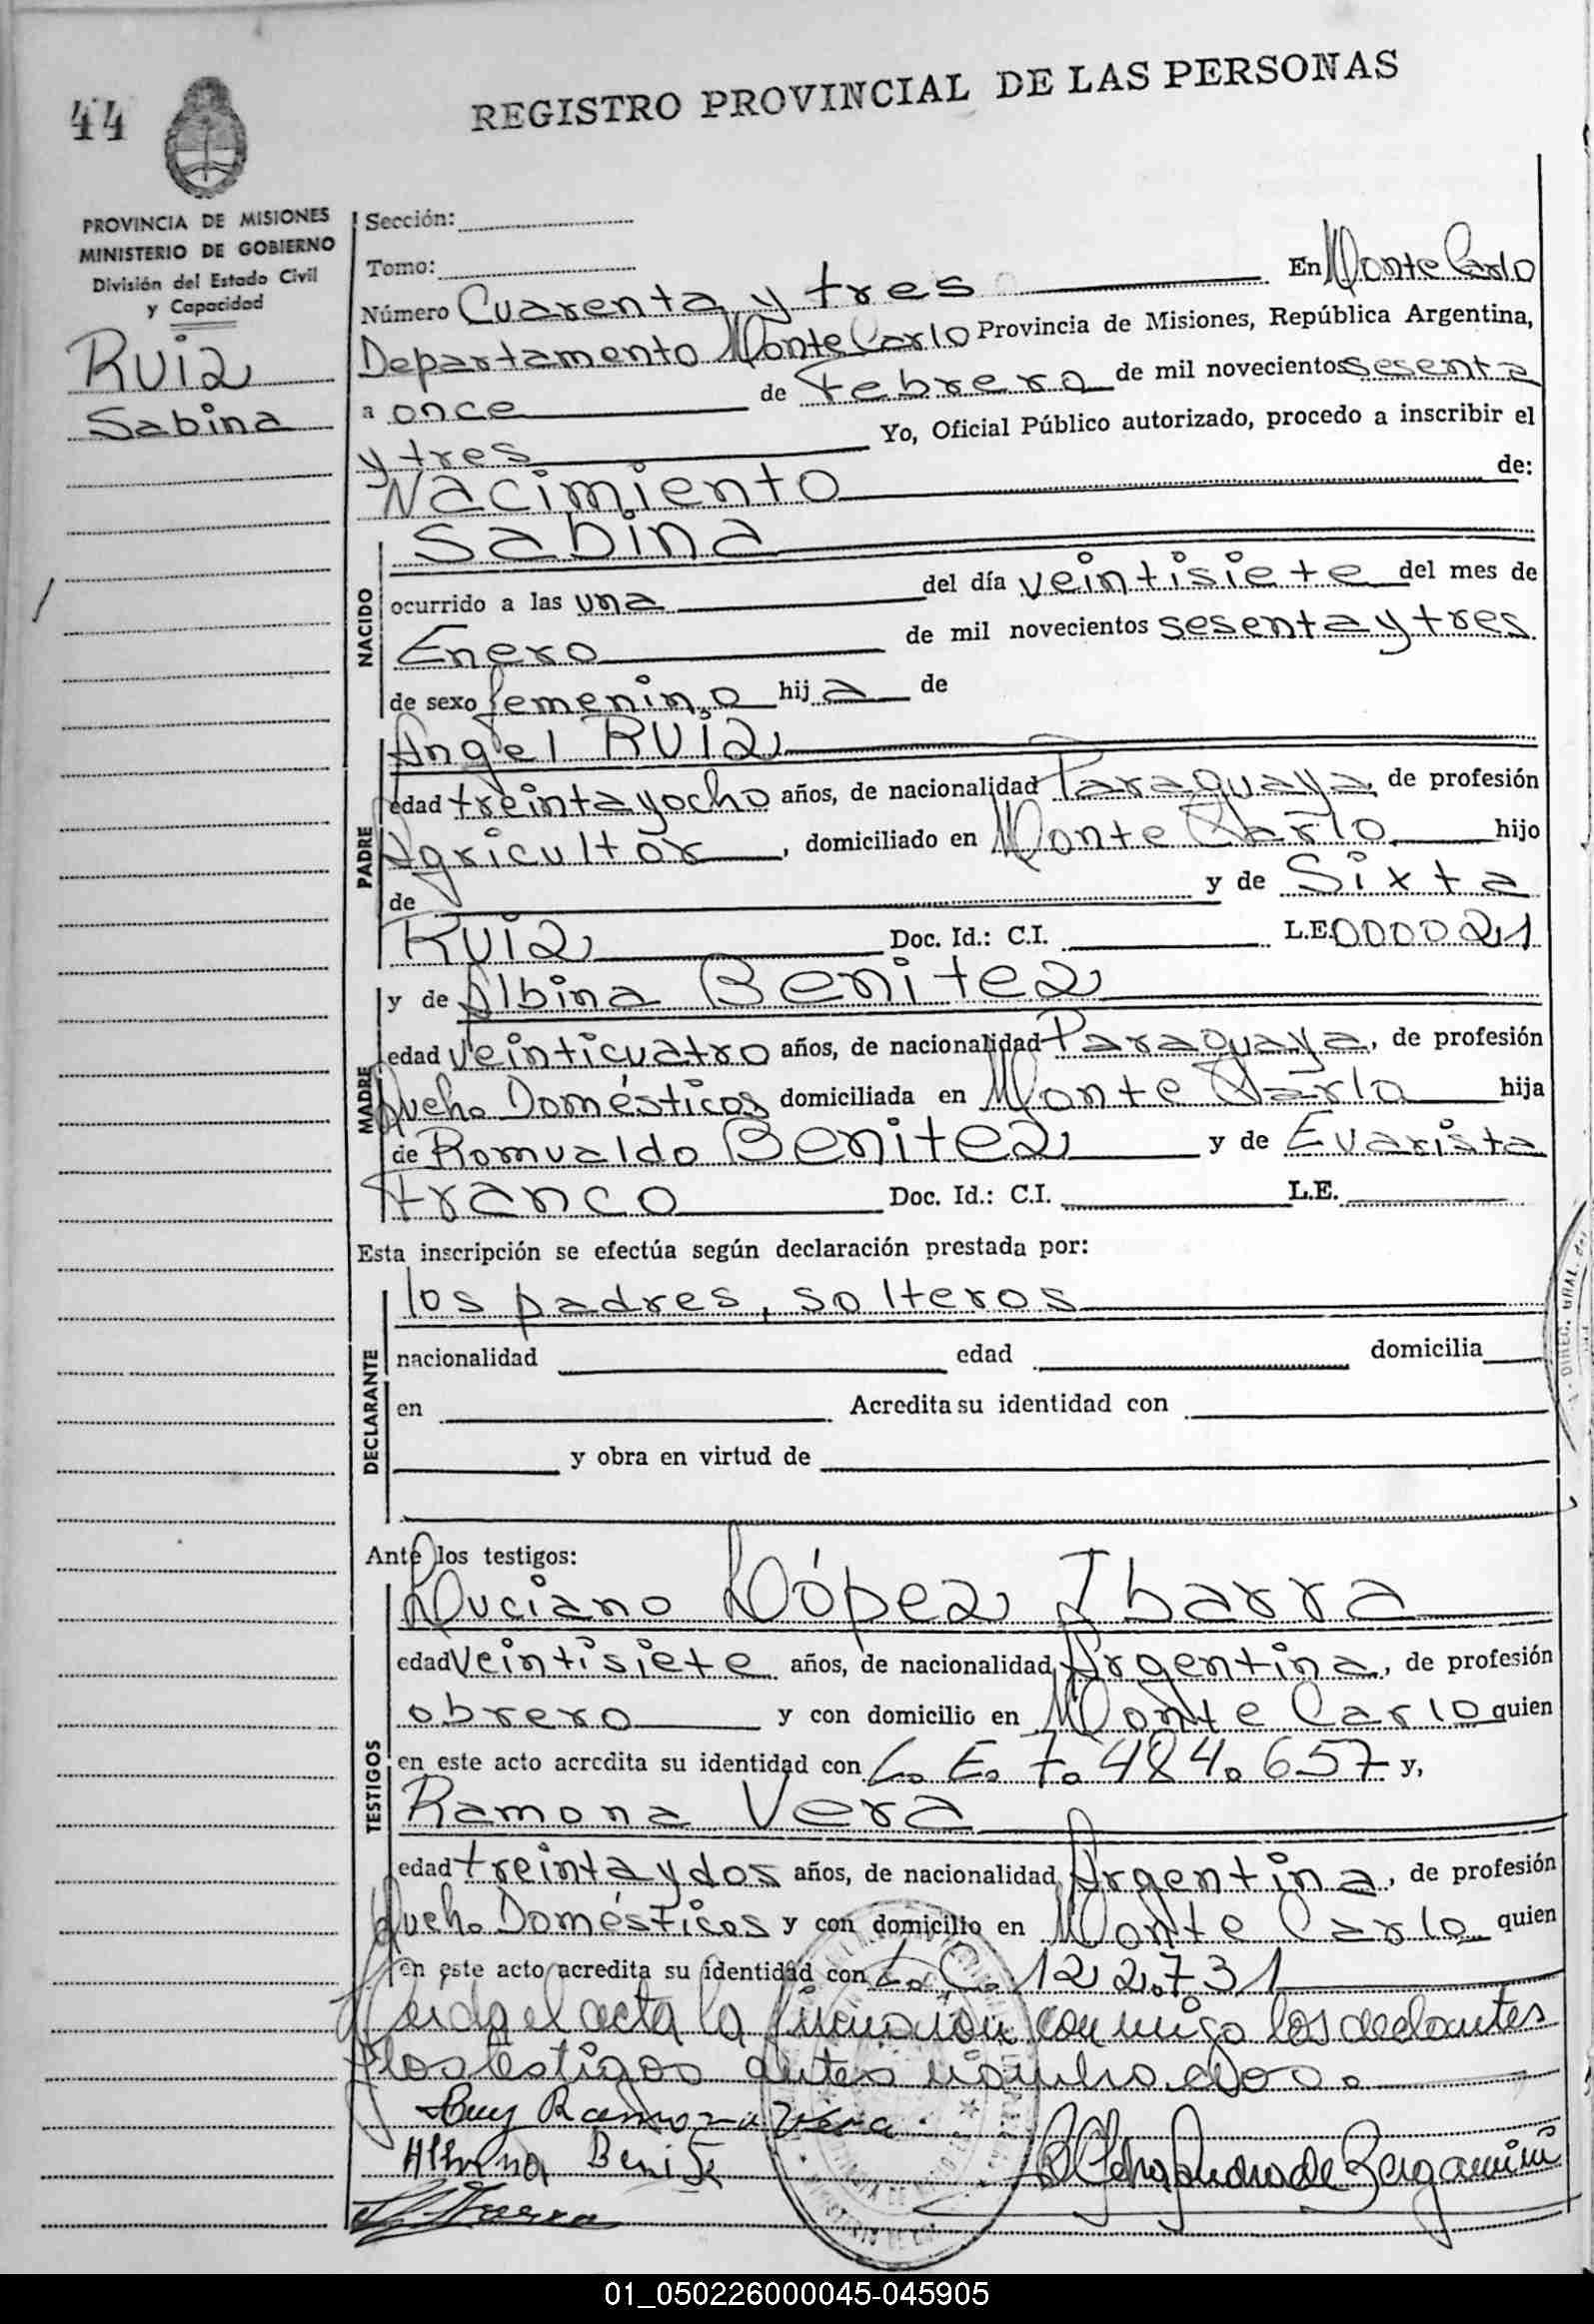 44
REGISTRO PROVINCIAL DE LAS PERSONAS
PROVINCIA DE MISIONES
MINISTERIO DE GOBIERNO
División del Estado Civil
y Capacidad
Ruiz
Sabina
Sección:
Tomo:
Número Cuarenta y tres En Monte Carlo
Departamento Monte Carlo Provincia de Misiones, República Argentina,
a once de Febrero de mil novecientos sesenta
y tres Yo, Oficial Público autorizado, procedo a inscribir el
Nacimiento de:
NACIDO
Sabina
ocurrido a las una del día veintisiete del mes de
Enero de mil novecientos sesenta y tres
de sexo femenino hija de
PADRE
Angel Ruiz
edad treinta y ocho años, de nacionalidad Paraguaya de profesión
Agricultor, domiciliado en Monte Carlo hijo
de y de Sixta
Ruiz Doc. Id.: C.I. L.E. 0000021
MADRE
y de Albina Benitez
edad veinticuatro años, de nacionalidad Paraguaya, de profesión
Queh. Domésticos domiciliada en Monte Carlo hija
de Romualdo Benitez y de Evarista
Franco Doc. Id.: C.I. L.E.
Esta inscripción se efectúa según declaración prestada por:
DECLARANTE
los padres, solteros
nacionalidad edad domicilia
en Acredita su identidad con
y obra en virtud de
Ante los testigos:
TESTIGOS
Luciano López Ibarra
edad veintisiete años, de nacionalidad Argentina, de profesión
obrero y con domicilio en Monte Carlo quien
en este acto acredita su identidad con L. E. 7. 484. 657 y,
Ramona Vera
edad treinta y dos años, de nacionalidad Argentina, de profesión
Queh. Domésticos y con domicilio en Monte Carlo quien
en este acto acredita su identidad con L. C. 122.731
Leida el acta la firman con migo los declantes
y los testigos antes
Ramona Vera
Albina Benitez
de Bergamini
01_050226000045-045905